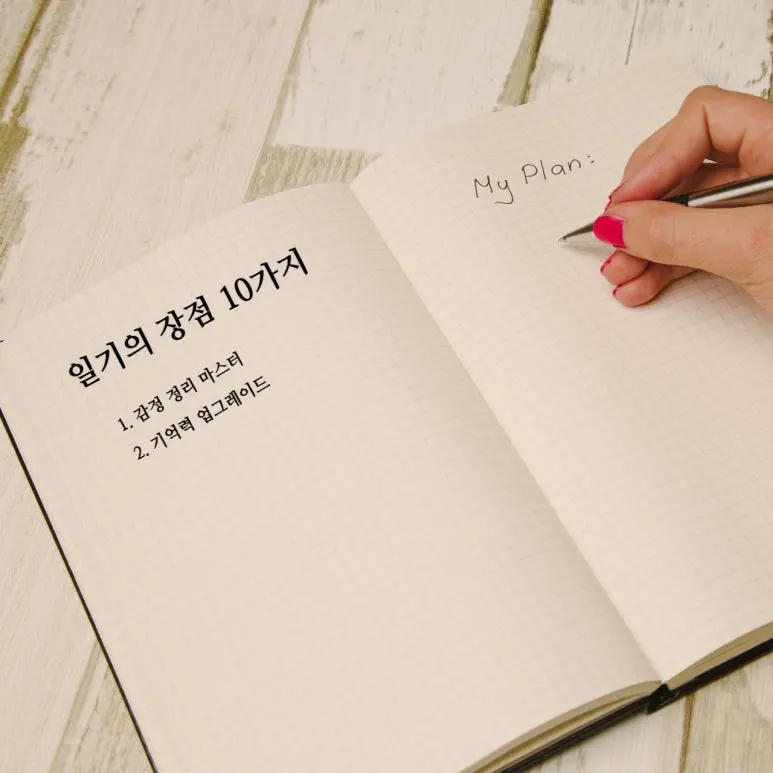 일기의 장점 10가지
1. 감정 정리 마스터
2. 기억력 업그레이드
My Plan: